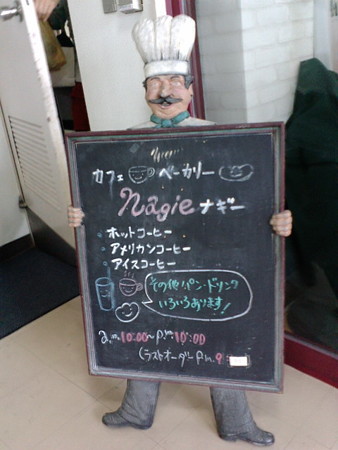 カフェ ベーカリー
Nagie ナギー
ホットコーヒー
アメリカンコーヒー
アイスコーヒー
その他パン・ドリンク
いろいろあります!
a.m.10:00～P.m.10:00
(ラストオーダーP.m.9